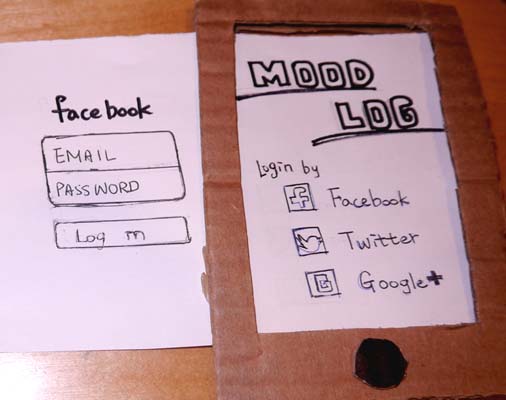 facebook
EMAIL
PASSWORD
Log in
MOOD
LOG
Login by
Facebook
Twitter
Google+